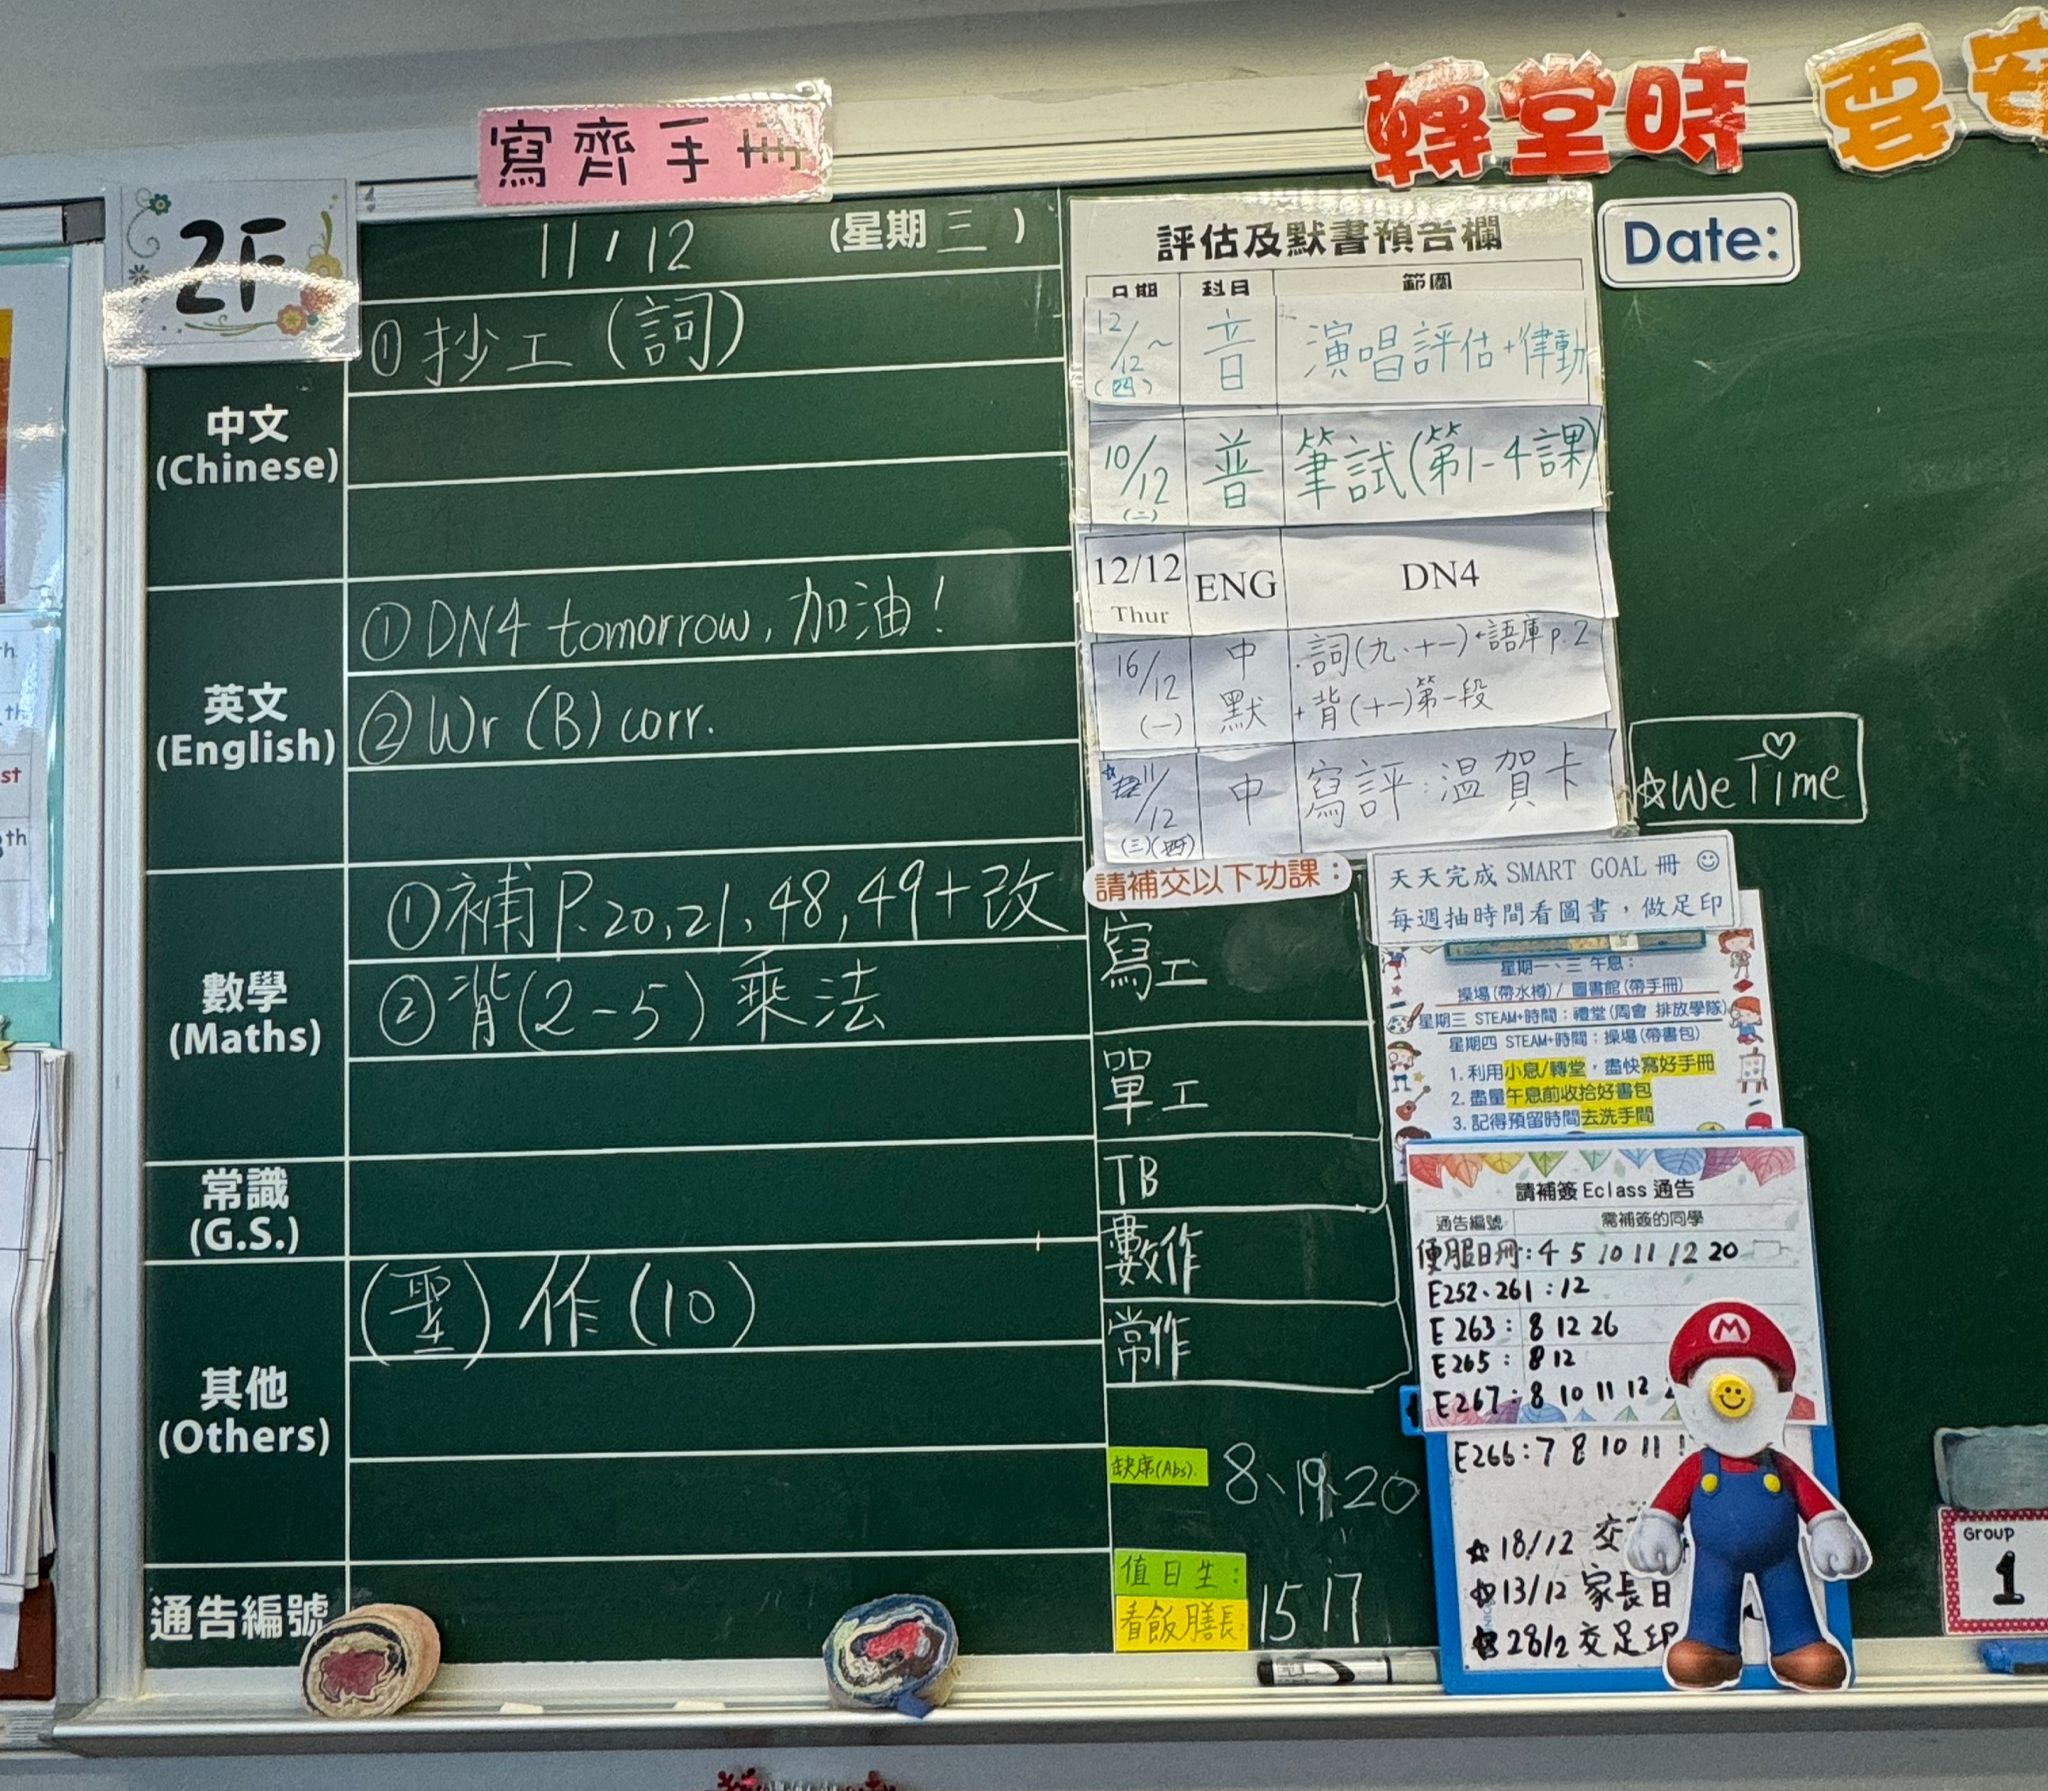 寫齊手冊
轉堂時 要安
2F
11/12 (星期三)
中文
(Chinese)
①抄工(詞)
英文
(English)
①DN4 tomorrow, 加油!
②Wr (B) corr.
數學
(Maths)
①補P.20,21,48,49+改
②背(2-5)乘法
常識
(G.S.)
其他
(Others)
(聖)作(10)
通告編號
評估及默書預告欄
日期 科目 範圍
12/12~(四) 音 演唱評估+律動
10/12(二) 普 筆試(第1-4課)
12/12 Thur ENG DN4
16/12(一) 中默 ·詞(九、十一)←語庫p.2
+背(十一)第一段
☆11/12(三) 中 寫評:溫賀卡
請補交以下功課:
寫工
單工
TB
數作
常作
缺席(Abs). 8、19、20
值日生:
看飯膳長 15 17
Date:
☆We Time
天天完成 SMART GOAL 冊 ☺
每週抽時間看圖書,做足印
星期一、三 午息:
操場(帶水樽) / 圖書館(帶手冊)
星期三 STEAM+時間:禮堂(周會 排放學隊)
星期四 STEAM+時間:操場(帶書包)
1. 利用小息/轉堂,盡快寫好手冊
2. 盡量午息前收拾好書包
3. 記得預留時間去洗手間
請補簽 Eclass 通告
通告編號 需補簽的同學
便服日冊:4 5 10 11 12 20
E252、261:12
E263:8 12 26
E265:8 12
E267:8 10 11 12
E266:7 8 10 11
☆18/12 交
☆13/12 家長日
☆28/2 交足印
Group
1